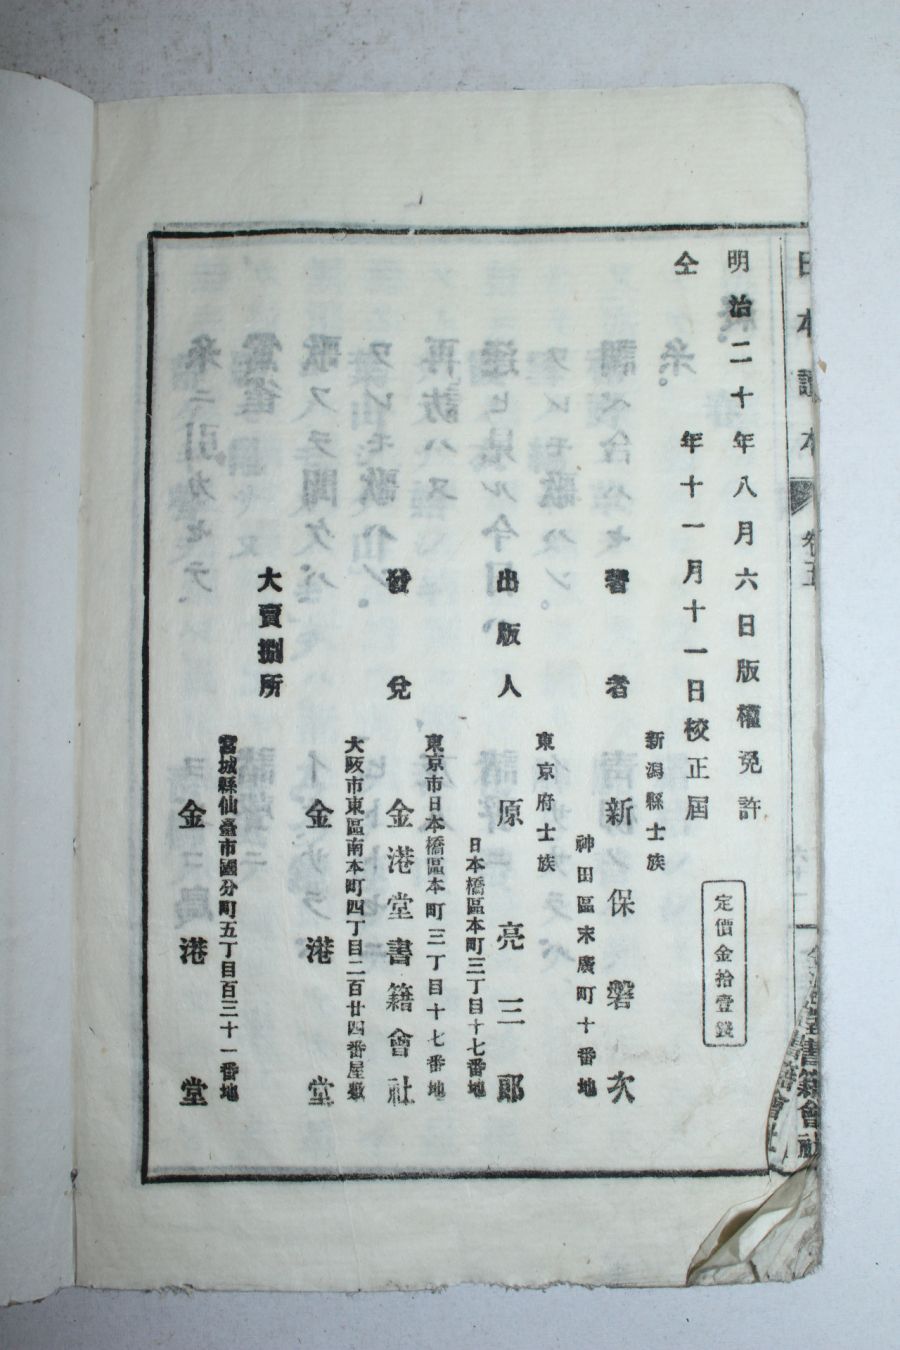 日本讀本
卷五
金港堂書籍會社
明治二十年八月六日版權免許
仝年十一月十一日校正屆
定價金拾壹錢
新潟縣士族
著者 新保磐次
神田區末廣町十番地
東京府士族
出版人 原亮三郎
日本橋區本町三丁目十七番地
東京市日本橋區本町三丁目十七番地
發兌 金港堂書籍會社
大阪市東區南本町四丁目二百廿四番屋敷
金港堂
大賣捌所
宮城縣仙臺市國分町五丁目百三十一番地
金港堂